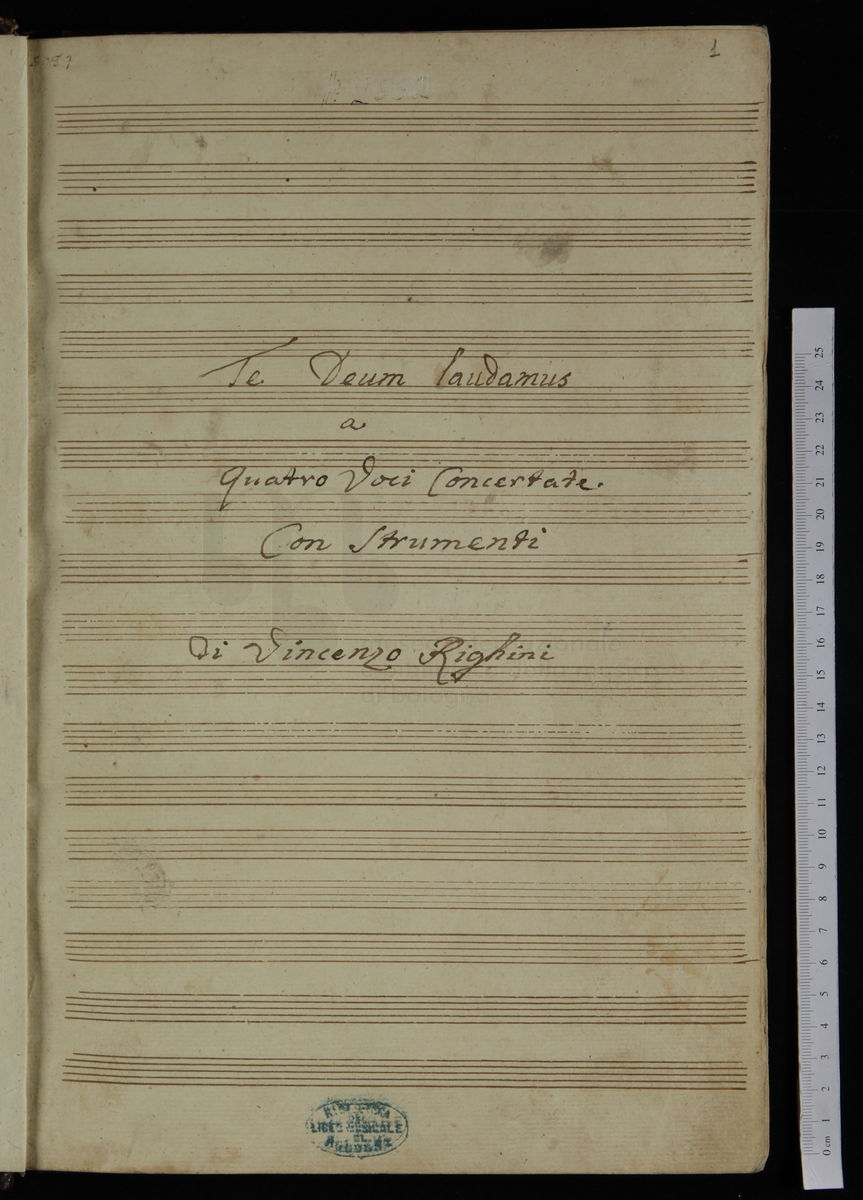 1
Te Deum laudamus
a
Quatro Voci Concertate.
Con Strumenti
Di Vincenzo Righini
di bologna
BIBLIOTECA
DEL
LICEO MUSICALE
DI
BOLOGNA
25
24
23
22
21
20
19
18
17
16
15
14
13
12
11
10
9
8
7
6
5
4
3
2
1
0 cm